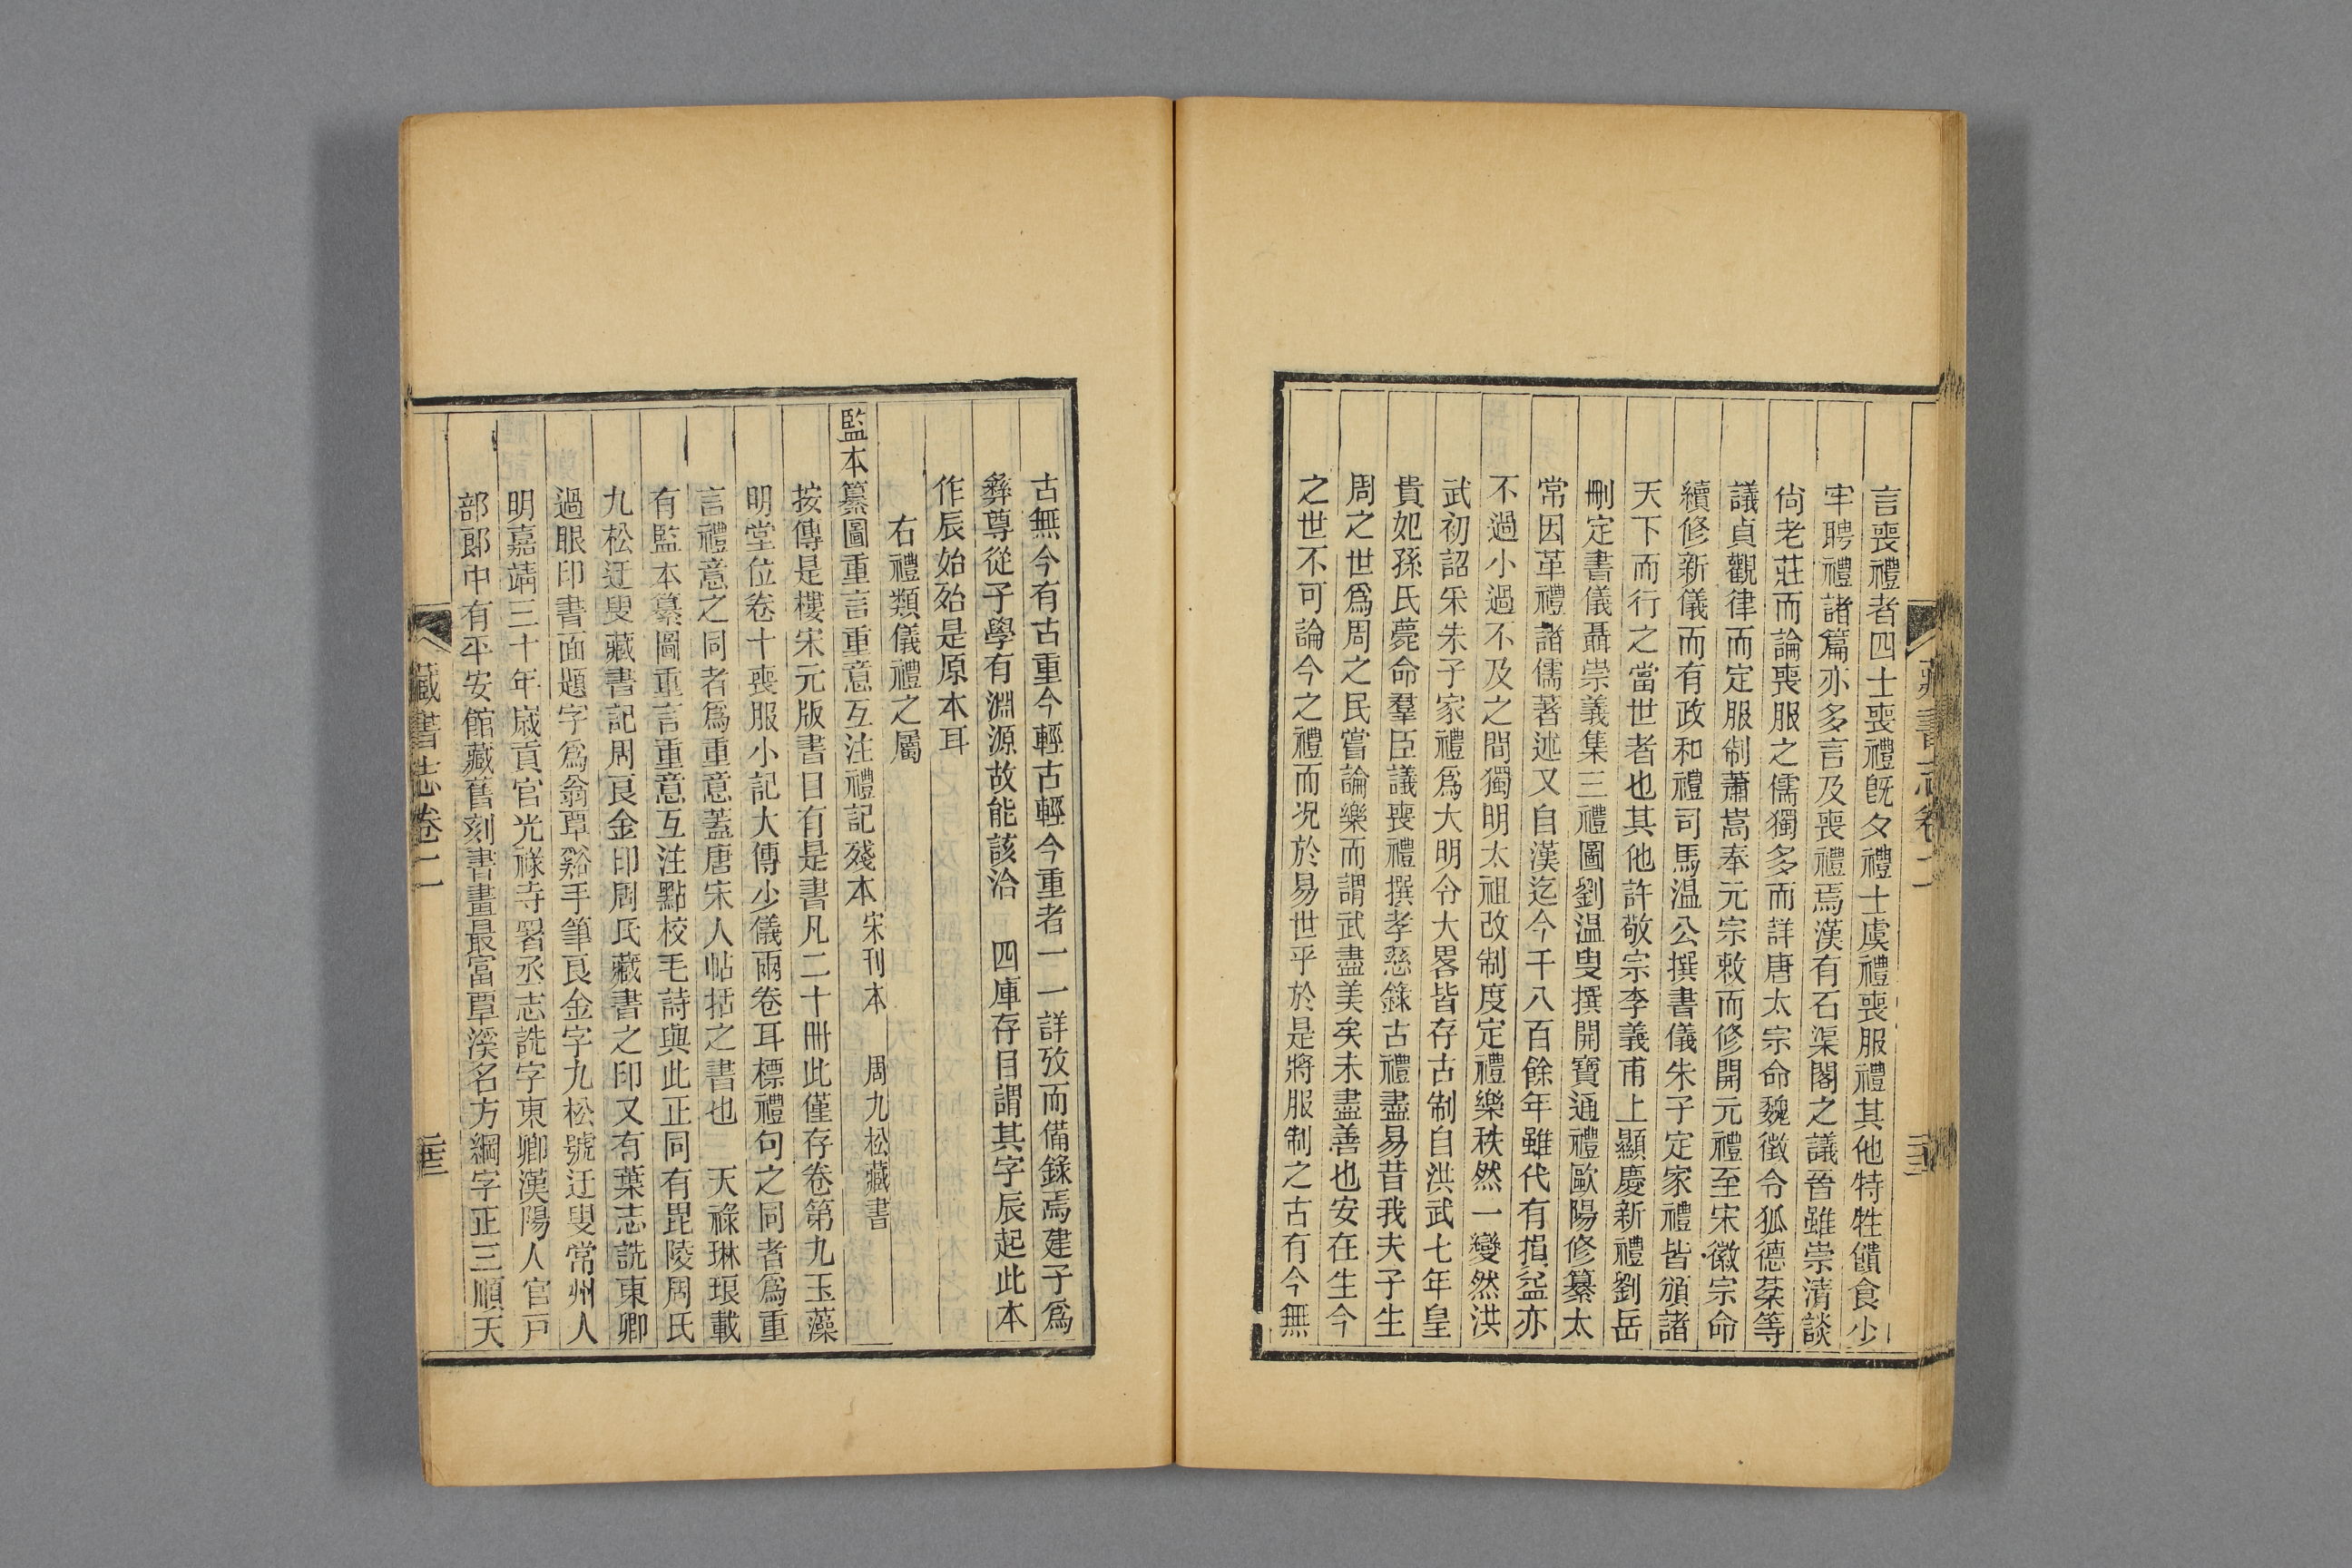 言喪禮者四士喪禮旣夕禮士虞禮喪服禮其他特牲饋食少
牢聘禮諸篇亦多言及喪禮焉漢有石渠閣之議晉雖崇清談
尙老莊而論喪服之儒獨多而詳唐太宗命魏徵令狐德棻等
議貞觀律而定服制蕭嵩奉元宗敕而修開元禮至宋徽宗命
續修新儀而有政和禮司馬温公撰書儀朱子定家禮皆頒諸
天下而行之當世者也其他許敬宗李義甫上顯慶新禮劉岳
刪定書儀聶崇義集三禮圖劉温叟撰開寶通禮歐陽修纂太
常因革禮諸儒著述又自漢迄今千八百餘年雖代有損益亦
不過小過不及之間獨明太祖改制度定禮樂秩然一變然洪
武初詔釆朱子家禮爲大明令大畧皆存古制自洪武七年皇
貴妃孫氏薨命羣臣議喪禮撰孝慈錄古禮盡易昔我夫子生
周之世爲周之民嘗論樂而謂武盡美矣未盡善也安在生今
之世不可論今之禮而况於易世乎於是將服制之古有今無
古無今有古重今輕古輕今重者一一詳攷而備錄焉建子爲
彝尊從子學有淵源故能該洽　四庫存目謂其字辰起此本
作辰始殆是原本耳
右禮類儀禮之屬
監本纂圖重言重意互注禮記殘本宋刊本　周九松藏書
按傳是樓宋元版書目有是書凡二十冊此僅存卷第九玉藻
明堂位卷十喪服小記大傳少儀兩卷耳標禮句之同者爲重
言禮意之同者爲重意蓋唐宋人帖括之書也　天祿琳琅載
有監本纂圖重言重意互注點校毛詩與此正同有毘陵周氏
九松迂叟藏書記周良金印周氏藏書之印又有葉志詵東卿
過眼印書面題字爲翁覃谿手筆良金字九松號迂叟常州人
明嘉靖三十年歲貢官光祿寺署丞志詵字東卿漢陽人官戸
部郎中有平安館藏舊刻書畫最富覃溪名方綱字正三順天
藏書志卷二